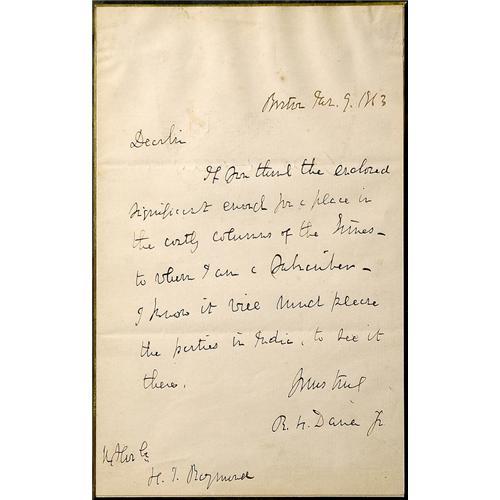 Boston Mar. 9. 1863
Dear Sir
If you think the enclosed
significant enough for a place in
the costly columns of the Times –
to whom I am a Subscriber –
I know it will much please
the parties in India, to see it
there.
Yours truly
R. H. Dana Jr
H. J. Raymond